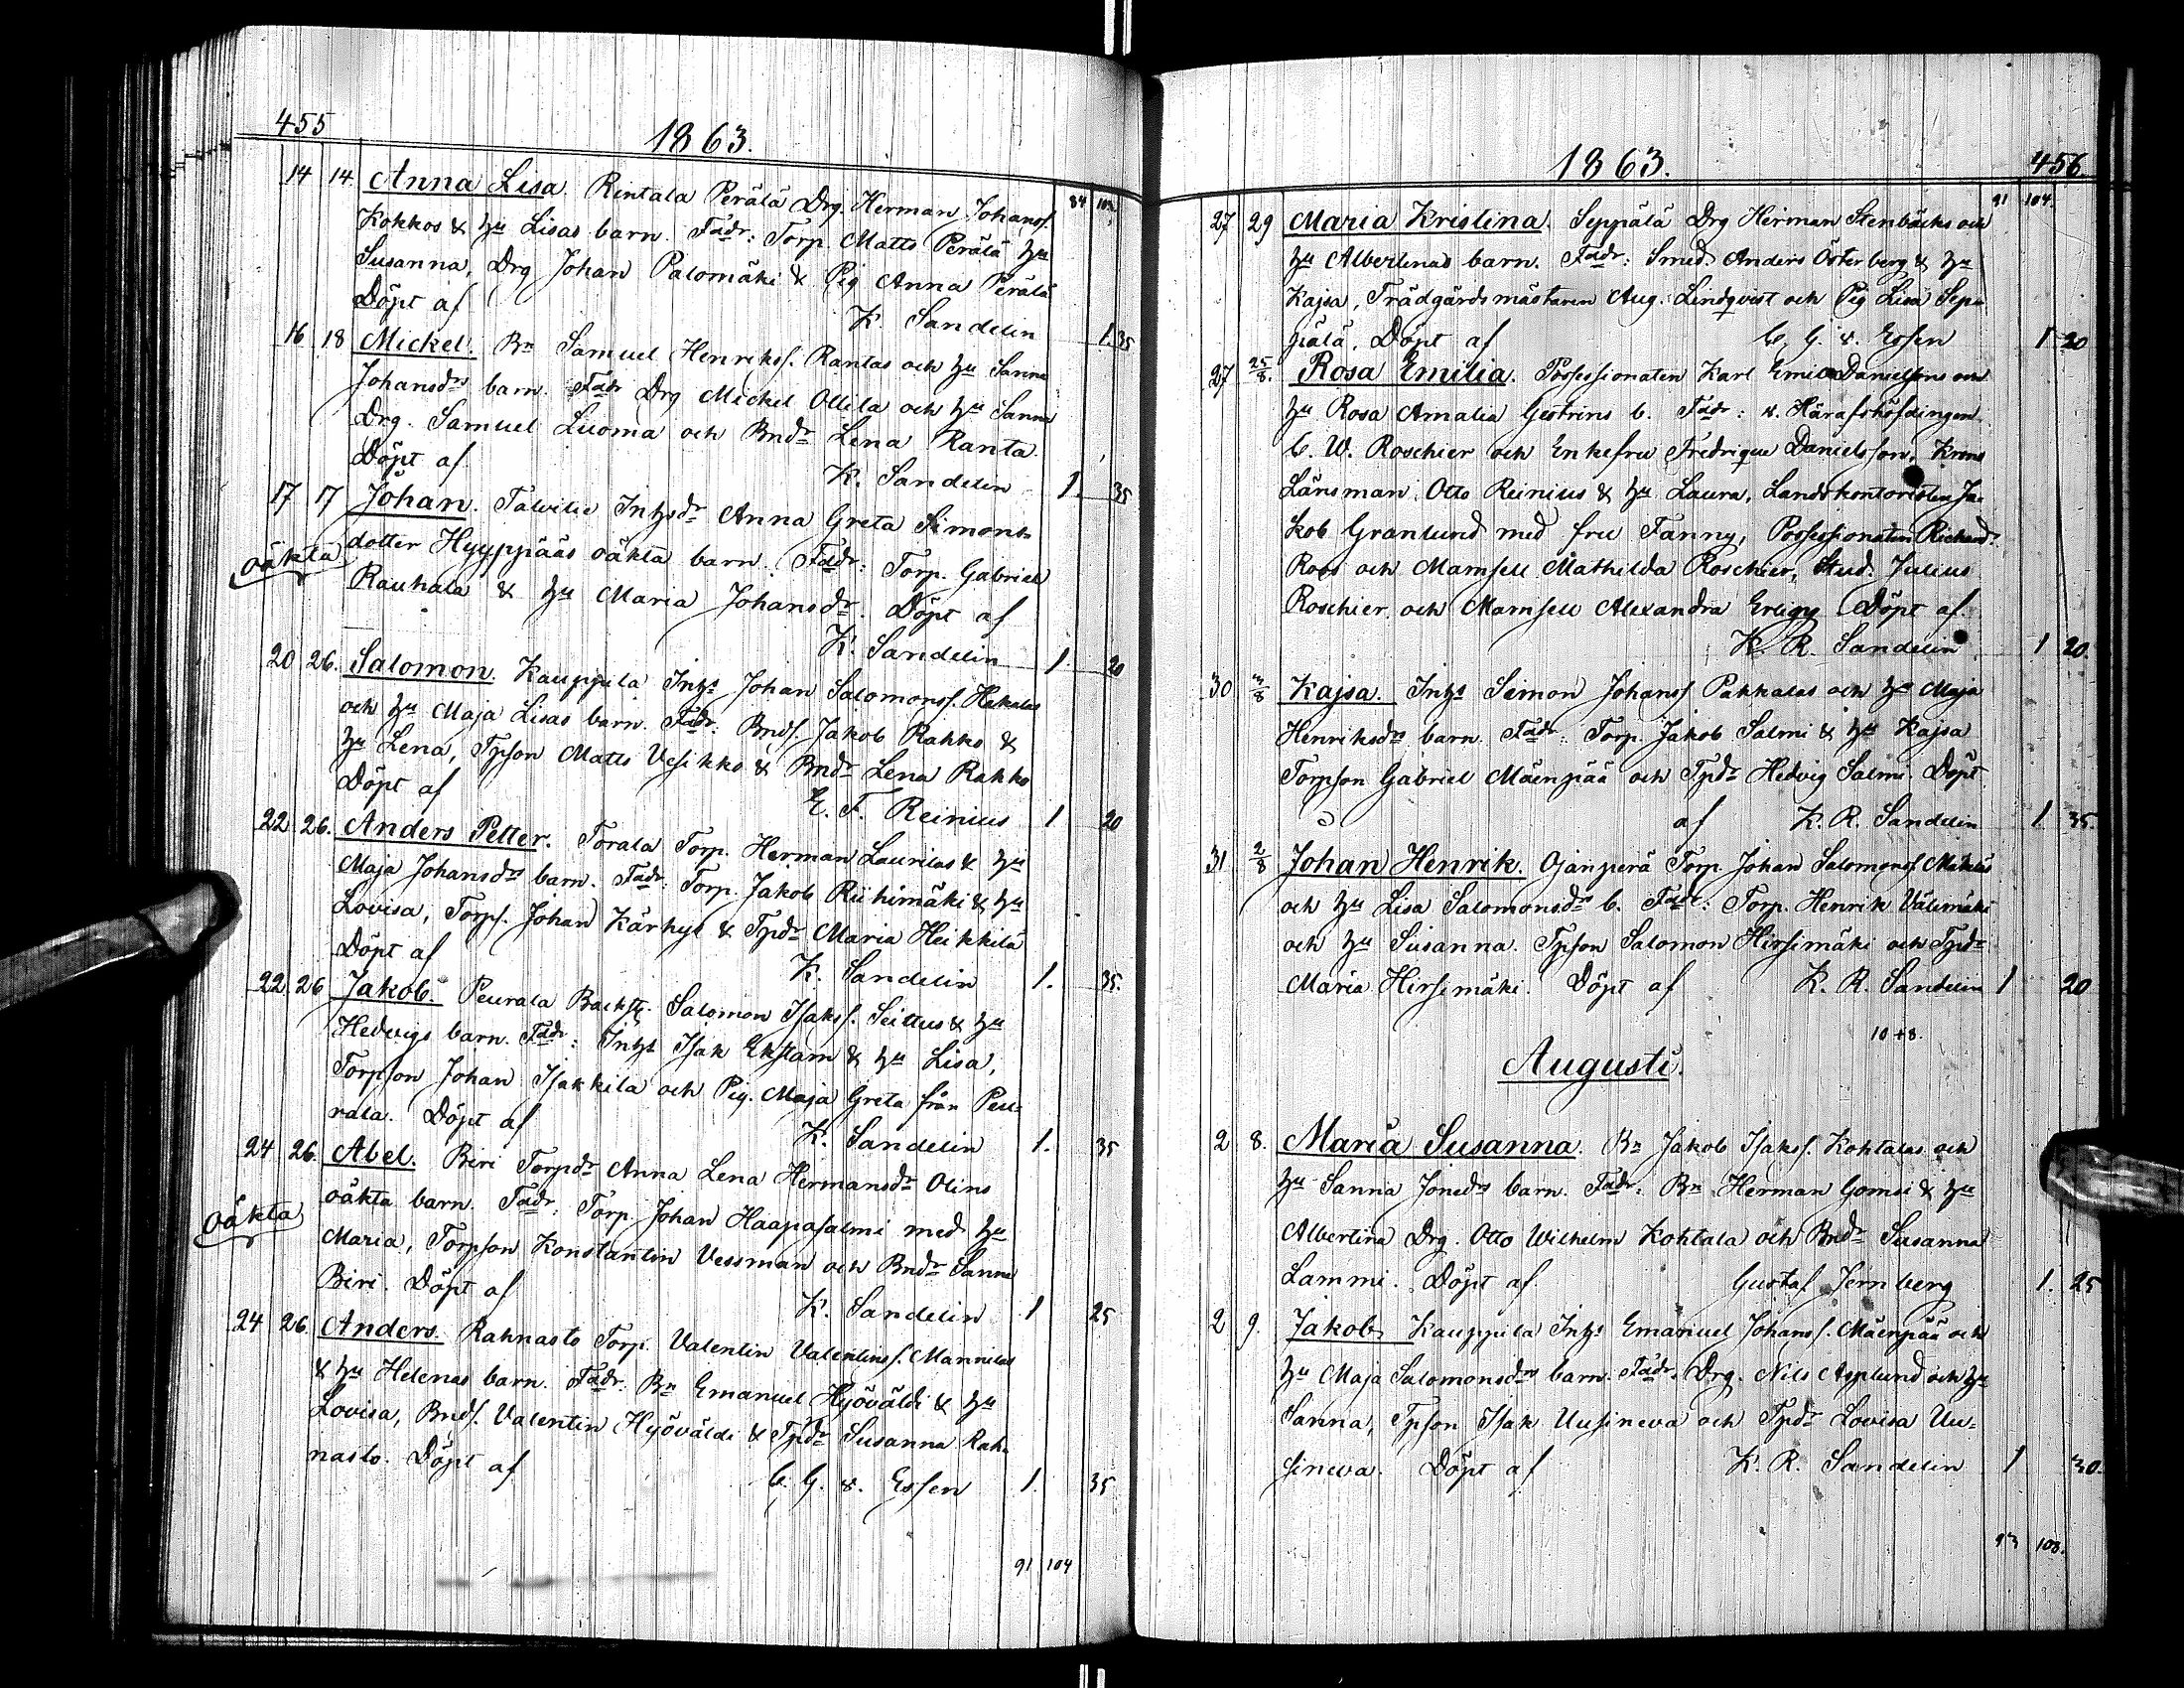 455
1863.
84 103.
14 14 Anna Lisa. Rintala Perälä Drg. Herman Johanss.
Kokkos & hu Lisas barn. Fadr: Torp. Matts Perälä hu
Susanna, Drg Johan Palomäki & Pig Anna Perälä
Döpt af K. Sandelin 1. 35
16 18 Mickel. Bn Samuel Henrikss. Rantas och hu Sanna
Johansdrs barn. Fadr Drg Mickel Ollila och hu Sanna
Drg. Samuel Luoma och Bndr Lena Ranta.
Döpt af K. Sandelin 1. 35
17 17 Johan. Talvitie Inhsdr Anna Greta Simons
oäkta dotter Hyyppääs oäkta barn. Fadr: Torp. Gabriel
Rauhala & hu Maria Johansdr. Döpt af
K. Sandelin 1. 20
20 26. Salomon. Kauppila Inhs Johan Salomonss. Hakalas
och hu Maja Lisas barn. Fadr: Bnds. Jakob Rahko &
hu Lena, Tpson Matts Vesikko & Bndr Lena Rahko
Döpt af E. F. Reinius 1 20
22. 26. Anders Petter. Torala Torp. Herman Laurilas & hu
Maja Johansdrs barn. Fadr: Torp. Jakob Riihimäki & hu
Lovisa, Torps. Johan Kärkys & Tpdr Maria Heikkilä
Döpt af K. Sandelin 1. 35.
22. 26 Jakob. Peurala Backst. Salomon Isakss. Seittus & hu
Hedvigs barn. Fadr: Inhs Isak Ekstam & hu Lisa,
Torpson Johan Isakkila och Pig. Maja Greta från Peu=
rala. Döpt af K. Sandelin 1. 35
24 26. Abel. Biri Torpdr Anna Lena Hermansdr Olins
oäkta oäkta barn. Fadr: Torp. Johan Haapasalmi med hu
Maria, Torpson Konstantin Vessman och Bndr Sanna
Biri. Döpt af K. Sandelin 1 25
24 26. Anders. Rahnasto Torp. Valentin Valentinss. Mannilas
& hu Helenas barn. Fadr: Bn Emanuel Hyöväldi & hu
Lovisa, Bnds. Valentin Hyöväldi & Tpdr Susanna Rah=
nasto. Döpt af C. G. v. Essen 1. 35
91 104
1863. 456
91 104.
27 29 Maria Kristina. Seppälä Drg Herman Stenbäcks och
hu Albertinas barn. Fadr: Smed Anders Österberg & hu
Kajsa, Trädgårdsmästaren Aug. Lindqvist och Pig Lisa Sep=
pälä, Döpt af C. G. v. Essen 1 20
27 25/8. Rosa Emilia. Possessionaten Karl Emil Danielsons och
hu Rosa Amalia Gestrins b. Fadr: v. Häradshöfdingen
C. W. Roschier och Enkefru Fredrique Danielsson, Krono
Länsman Otto Reinius & hu Laura, Landskontoristen Ja=
kob Granlund med fru Fanny, Possessionaten Richard
Roos och Mamsell Mathilda Roschier, Stud. Julius
Roschier och Mamsell Alexandra Döpt af
K. R. Sandelin 1 20.
30 3/8 Kajsa. Inhs Simon Johanss Pakkalas och hu Maja
Henriksdrs barn. Fadr: Torp. Jakob Salmi & hu Kajsa
Torpson Gabriel Mäenpää och Tpdr Hedvig Salmi. Döpt
af K. R. Sandelin 1 35.
31 2/8 Johan Henrik. Ojanperä Torp. Johan Salomonss. Mäkiläs
och hu Lisa Salomonsdrs b. Fadr: Torp. Henrik Välimäki
och hu Susanna. Tpson Salomon Hirsimäki och Tpdr
Maria Hirsimäki. Döpt af K. R. Sandelin 1 20
10+8.
Augusti.
2 8. Maria Susanna. Bn Jakob Isakss. Kohtalas och
hu Sanna Jonsdrs barn. Fadr: Bn Herman Gomsi & hu
Albertina Drg. Otto Wilhelm Kohtala och Bndr Susanna
Lammi. Döpt af Gustaf Jernberg 1. 25
2 9. Jakob. Kauppila Inhs Emanuel Johanss. Mäenpää och
hu Maja Salomonsdrs barn. Fadr. Drg. Nils Asplund och hu
Sanna, Tpson Isak Uusineva och Tpdr Lovisa Uu=
sineva. Döpt af K. R. Sandelin 1 30.
93 108.